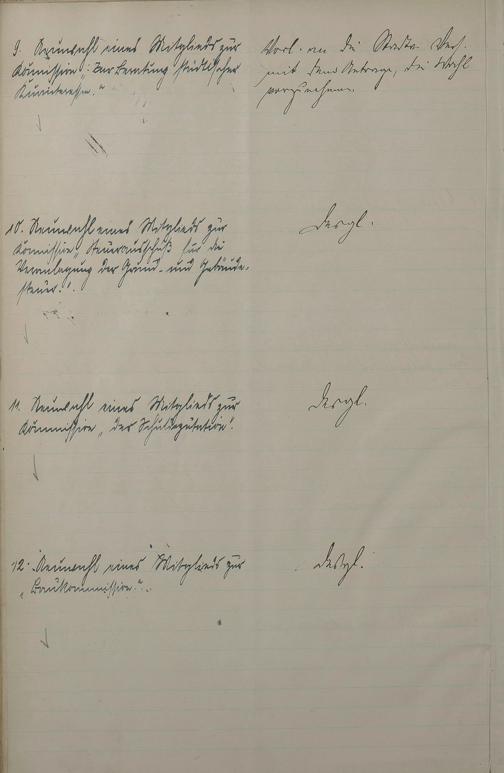 9. Neuwahl eines Mitglieds zur
Kommission „Zur Beratung städtischer
10. Neuwahl eines Mitglieds zur
Kommission „Steuerausschuß für die
Veranlagung der Grund- und Gebäude-
steuer."
11. Neuwahl eines Mitglieds zur
Kommission „der Schuldeputation".
12. Neuwahl eines Mitglieds zur
„Baukommission".
Vorl. an die Stadtv. Vers.
mit dem Antrage, die Wahl
vorzunehmen.
desgl.
desgl.
desgl.